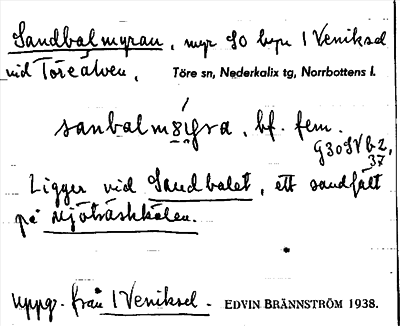 Sandbalmyran, myr SO byn 1 Veniksel
vid Töreälven, Töre sn, Nederkalix tg, Norrbottens l.
bf. fem.
G30SV b2,
37.
Ligger vid Sandbalet, ett sandfält
på Njöträskhälen.
Uppg. från 1 Veniksel. EDVIN BRÄNNSTRÖM 1938.